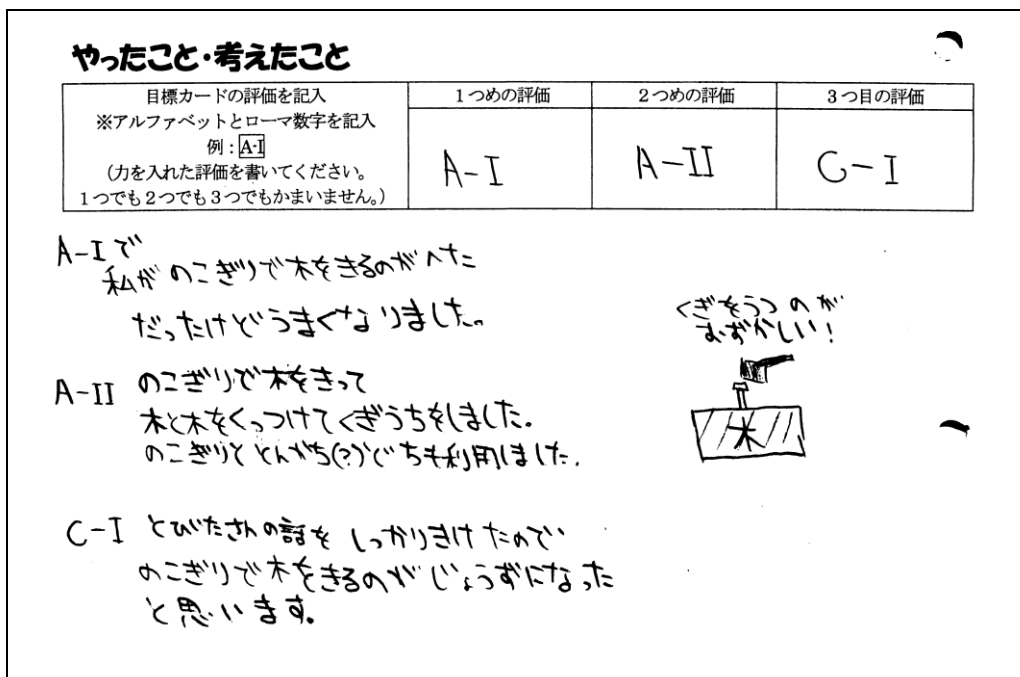 やったこと・考えたこと
目標カードの評価を記入
※アルファベットとローマ数字を記入
例：A-I
(力を入れた評価を書いてください。
1つでも2つでも3つでもかまいません。)
1つめの評価
2つめの評価
3つ目の評価
A-I
A-II
C-I
A-Iで
私がのこぎりで木をきるのがへた
だったけどうまくなりました。
くぎをうつのが
むずかしい!
木
A-II のこぎりで木をきって
木と木をくっつけてくぎうちをしました。
のこぎりととんかち(?)どちも利用しました.
C-I とびたさんの話をしっかりきけたので
のこぎりで木をきるのがじょうずになった
と思います。